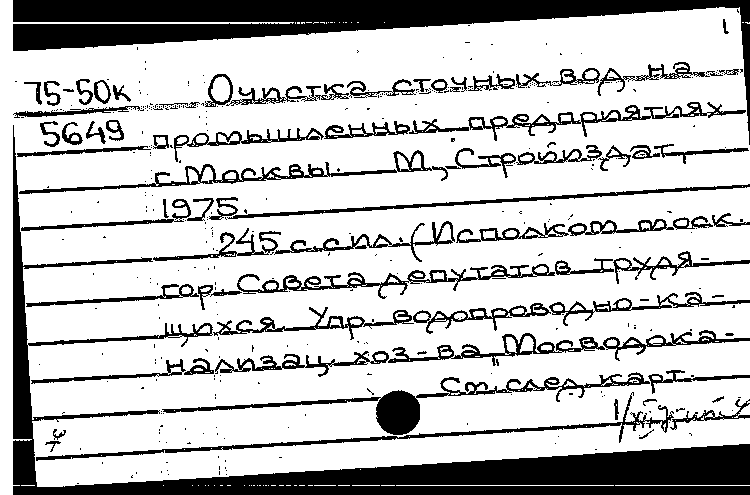 1
75-50к Очистка сточных вод на
5649 промышленных предприятиях
г. Москвы. М., Стройиздат,
1975.
245 с. с ил. (Исполком моск.
гор. Совета депутатов трудя-
щихся. Упр. водопроводно-ка-
нализац. хоз-ва "Мосводока-
См. след. карт.